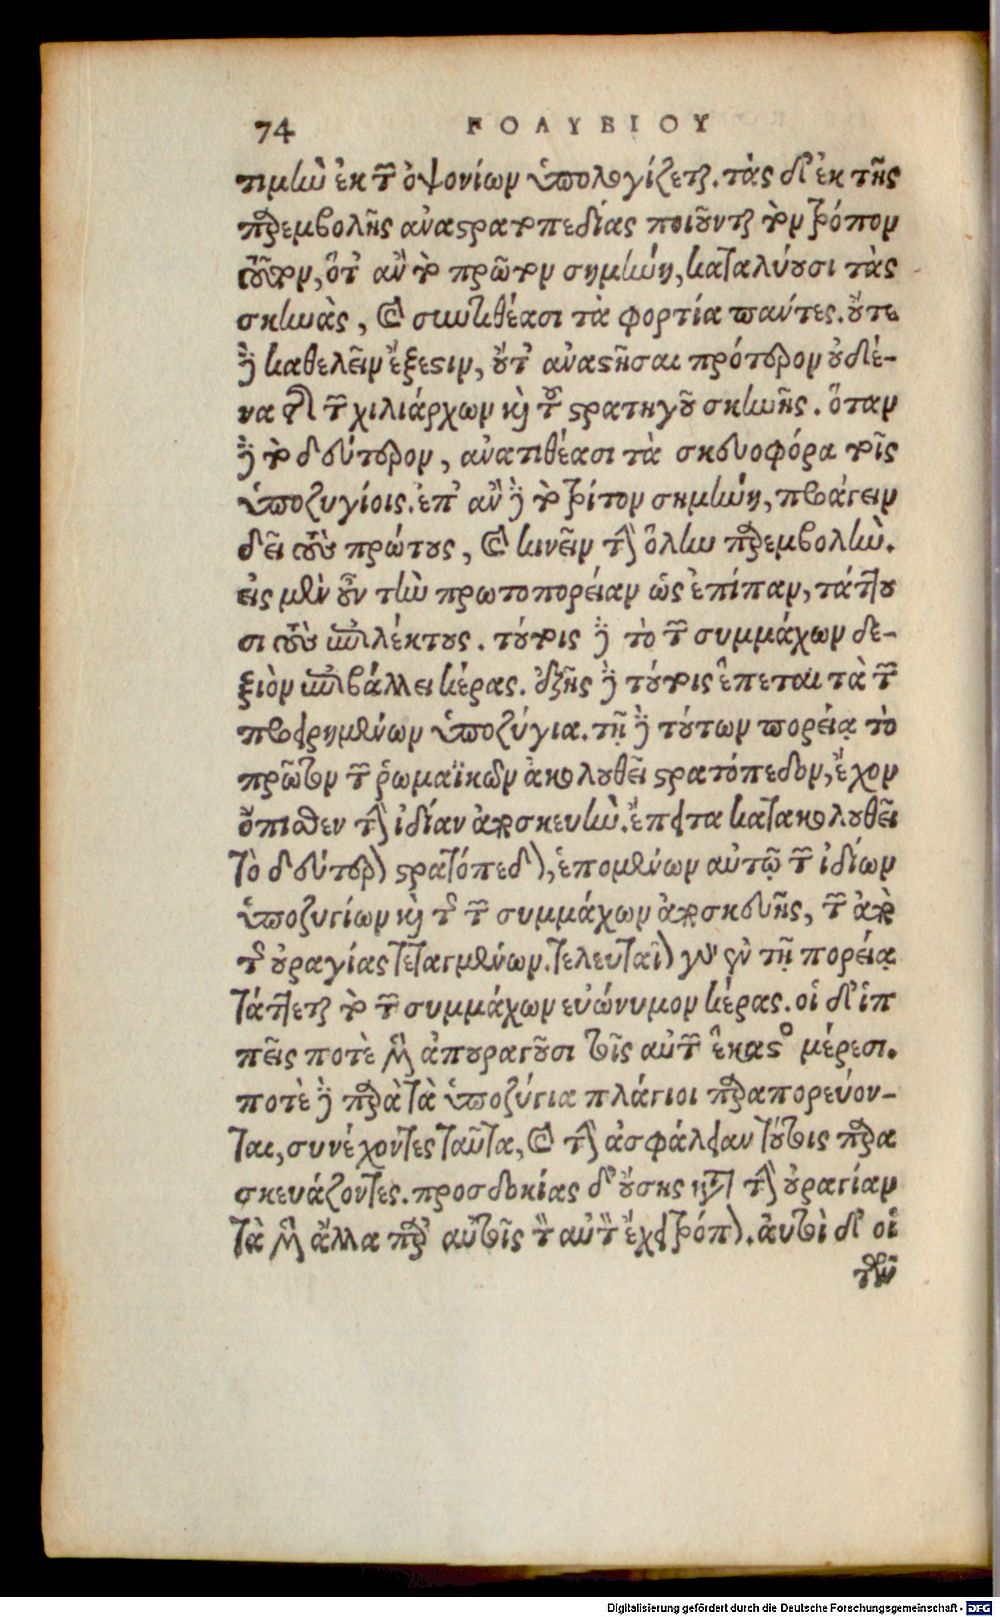 74 ΠΟΛΥΒΙΟΥ
τιμὴν ἐκ τῶν ὀψονίων ὑπολογίζεται. τὰς δ' ἐκ τῆς
παρεμβολῆς ἀναστρατοπεδίας ποιοῦνται τὸν τρόπον
τοῦτον, ὅτ' ἂν τὸ πρῶτον σημήνῃ, καταλύουσι τὰς
σκηνὰς, καὶ συντιθέασι τὰ φορτία πάντες. οὔτε
δὲ καθελεῖν ἔξεστιν, οὔτ' ἀναστῆσαι πρότερον οὐδέ-
να τῆς τῶν χιλιάρχων καὶ τοῦ στρατηγοῦ σκηνῆς. ὅταν
δὲ τὸ δεύτερον, ἀνατιθέασι τὰ σκευοφόρα τοῖς
ὑποζυγίοις. ἐπ' ἂν δὲ τὸ τρίτον σημήνῃ, προάγειν
δεῖ τοὺς πρώτους, καὶ κινεῖν τὴν ὅλην παρεμβολήν.
εἰς μὲν οὖν τὴν πρωτοπορείαν ὡς ἐπίπαν, τάττου
σι τοὺς ἐπιλέκτους. τούτοις δὲ τὸ τῶν συμμάχων δε-
ξιὸν ἐπιβάλλει κέρας. ἑξῆς δὲ τούτοις ἕπεται τὰ τῶν
προειρημένων ὑποζύγια. τῇ δὲ τούτων πορείᾳ τὸ
πρῶτον τῶν ῥωμαϊκῶν ἀκολουθεῖ στρατόπεδον, ἔχον
ὄπισθεν τὴν ἰδίαν ἀποσκευήν. ἔπειτα κατακολουθεῖ
τὸ δεύτερον στρατόπεδον, ἑπομένων αὐτῷ τῶν ἰδίων
ὑποζυγίων καὶ τῆς τῶν συμμάχων ἀποσκευῆς, τῶν ἀπὸ
τῆς οὐραγίας τεταγμένων. τελευταῖον γὰρ ἐν τῇ πορείᾳ
τάττεται τὸ τῶν συμμάχων εὐώνυμον κέρας. οἱ δ' ἱπ
πεῖς ποτὲ μὲν ἀπουραγοῦσι τοῖς αὐτῶν ἕκαστοι μέρεσι.
ποτὲ δὲ παρὰ τὰ ὑποζύγια πλάγιοι παραπορεύον-
ται, συνέχοντες ταῦτα, καὶ τὴν ἀσφάλειαν τούτοις παρα
σκευάζοντες. προσδοκίας δ' οὔσης κατὰ τὴν οὐραγίαν
τὰ μὲν ἄλλα παρ' αὐτοῖς τὸν αὐτὸν ἔχει τρόπον. αὐτοὶ δ' οἱ
τῶν
Digitalisierung gefördert durch die Deutsche Forschungsgemeinschaft - DFG